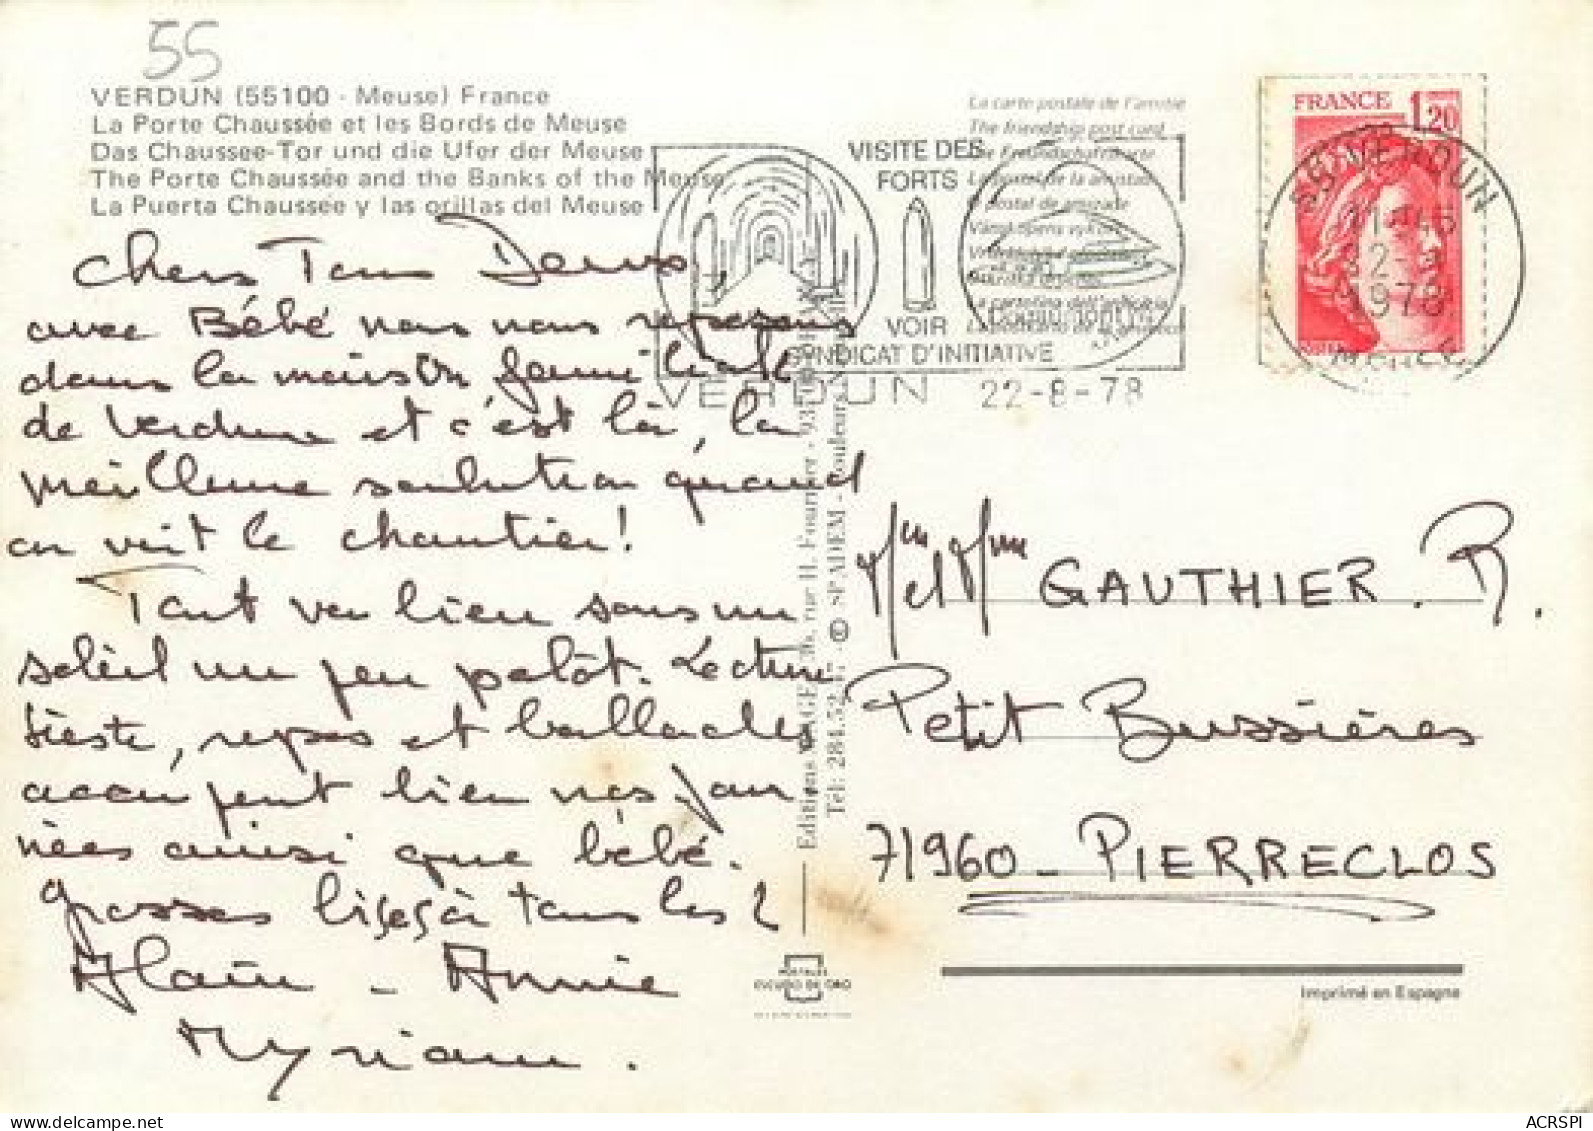 55
VERDUN (55100 - Meuse) France
La Porte Chaussée et les Bords de Meuse
Das Chaussee-Tor und die Ufer der Meuse
The Porte Chaussée and the Banks of the Meuse
La Puerta Chaussée y las orillas del Meuse
Chers Tous Deux,
avec Bébé nous nous reposons
dans la maison familiale
de Verdun et c'est là, la
meilleure solution quand
on voit le chantier!
Tout va bien sous un
soleil un peu palôt. Lecture
sieste, repas et ballades
occupent bien nos jour
nées ainsi que bébé.
Grosses bises à tous les 2
Alain - Annie
Myriam.
La carte postale de l'amitié
The friendship post card
Die Freundschaftskarte
La postal de la amistad
O postal de amizade
Vänskapens vykort
La cartolina dell'amicizia
VISITE DES
FORTS
VOIR
SYNDICAT D'INITIATIVE
Douaumont
VERDUN 22-8-78
FRANCE 1,20
55 VERDUN
11-45
22-8
1978
MEUSE
Editions MAGE, rue H. Fournier
Tél: 284.52.17 - © SPADEM - Couleurs
Mr et Mme GAUTHIER. R.
Petit Bussières
71960 - PIERRECLOS
POSTALES
ESCUDO DE ORO
Imprimé en Espagne
ACRSPI